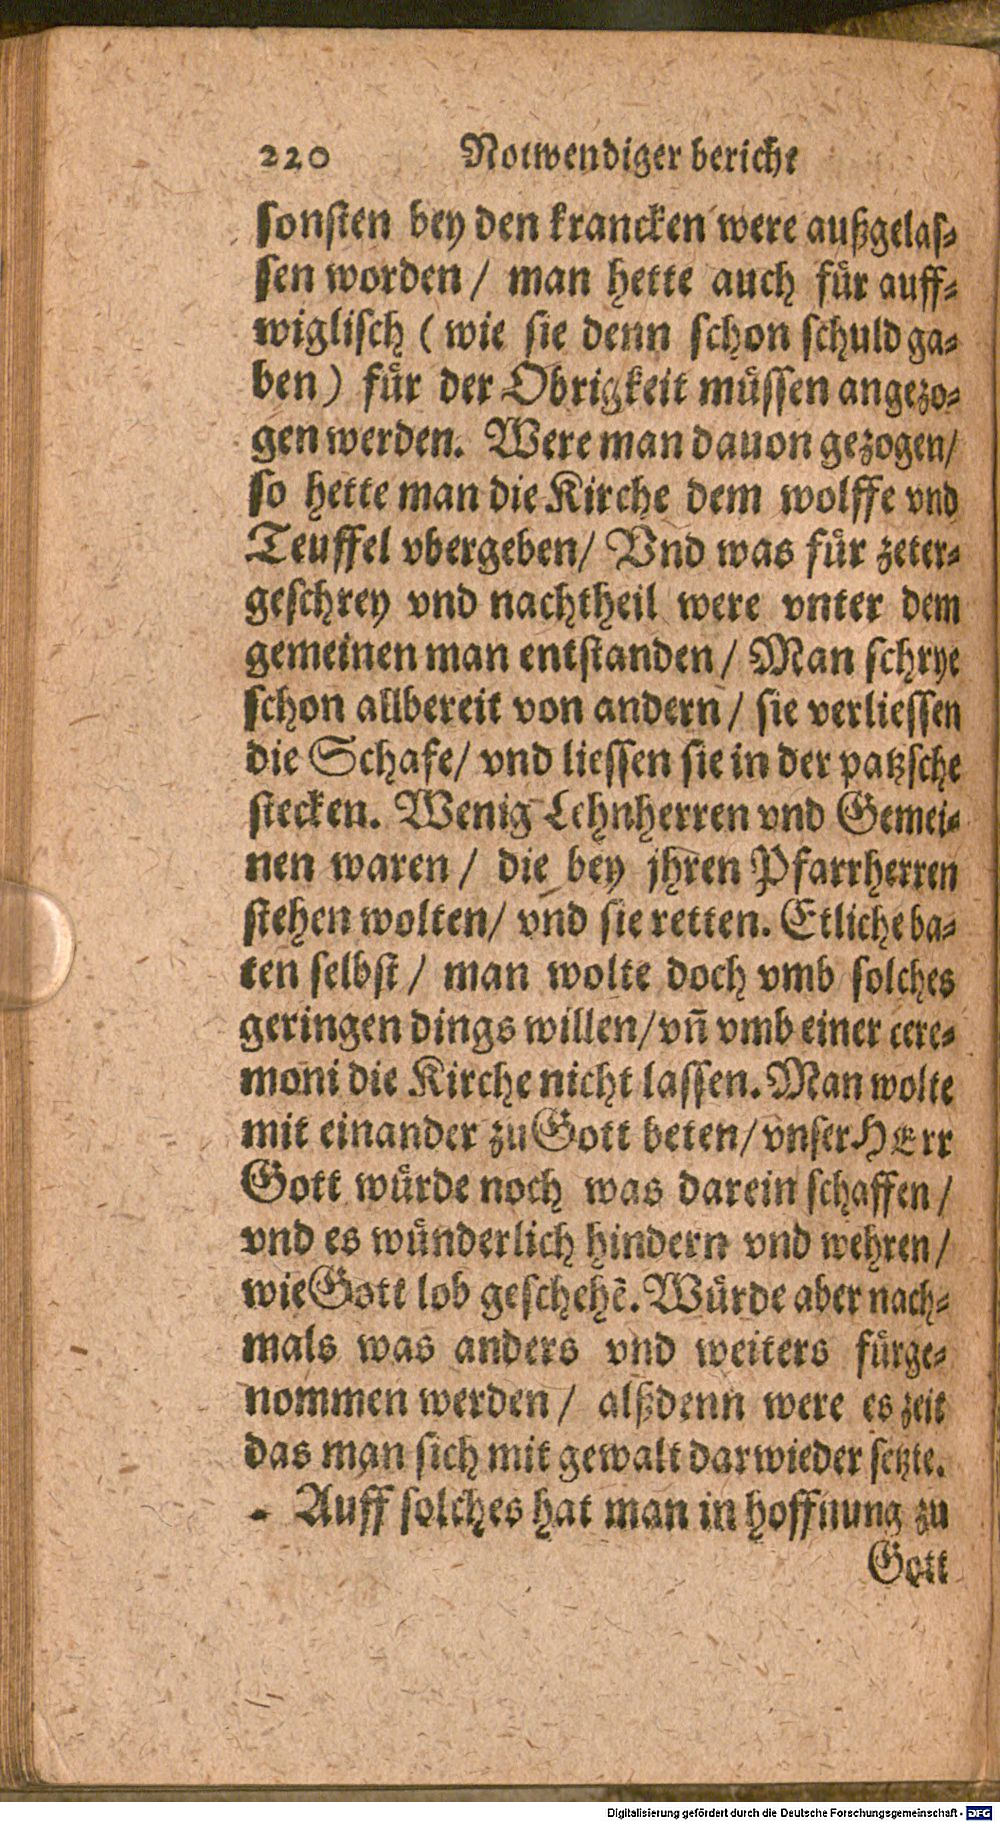 220 Notwendiger bericht
sonsten bey den krancken were außgelas⸗
sen worden / man hette auch fuͤr auff⸗
wiglisch ( wie sie denn schon schuld ga⸗
ben ) fuͤr der Obrigkeit muͤssen angezo⸗
gen werden. Were man dauon gezogen/
so hette man die Kirche dem wolffe vnd
Teuffel vbergeben/ Vnd was fuͤr zeter⸗
geschrey vnd nachtheil were vnter dem
gemeinen man entstanden / Man schrye
schon allbereit von andern / sie verliessen
die Schafe/ vnd liessen sie in der patzsche
stecken. Wenig Lehnherren vnd Gemei⸗
nen waren / die bey jhren Pfarrherren
stehen wolten/ vnd sie retten. Etliche ba⸗
ten selbst / man wolte doch vmb solches
geringen dings willen/ vñ vmb einer cere⸗
moni die Kirche nicht lassen. Man wolte
mit einander zu Gott beten/ vnser HErr
Gott wuͤrde noch was darein schaffen /
vnd es wuͤnderlich hindern vnd wehren/
wie Gott lob geschehẽ. Wuͤrde aber nach⸗
mals was anders vnd weiters fuͤrge⸗
nommen werden / alßdenn were es zeit
das man sich mit gewalt darwieder setzte.
Auff solches hat man in hoffnung zu
Gott
Digitalisierung gefördert durch die Deutsche Forschungsgemeinschaft - DFG